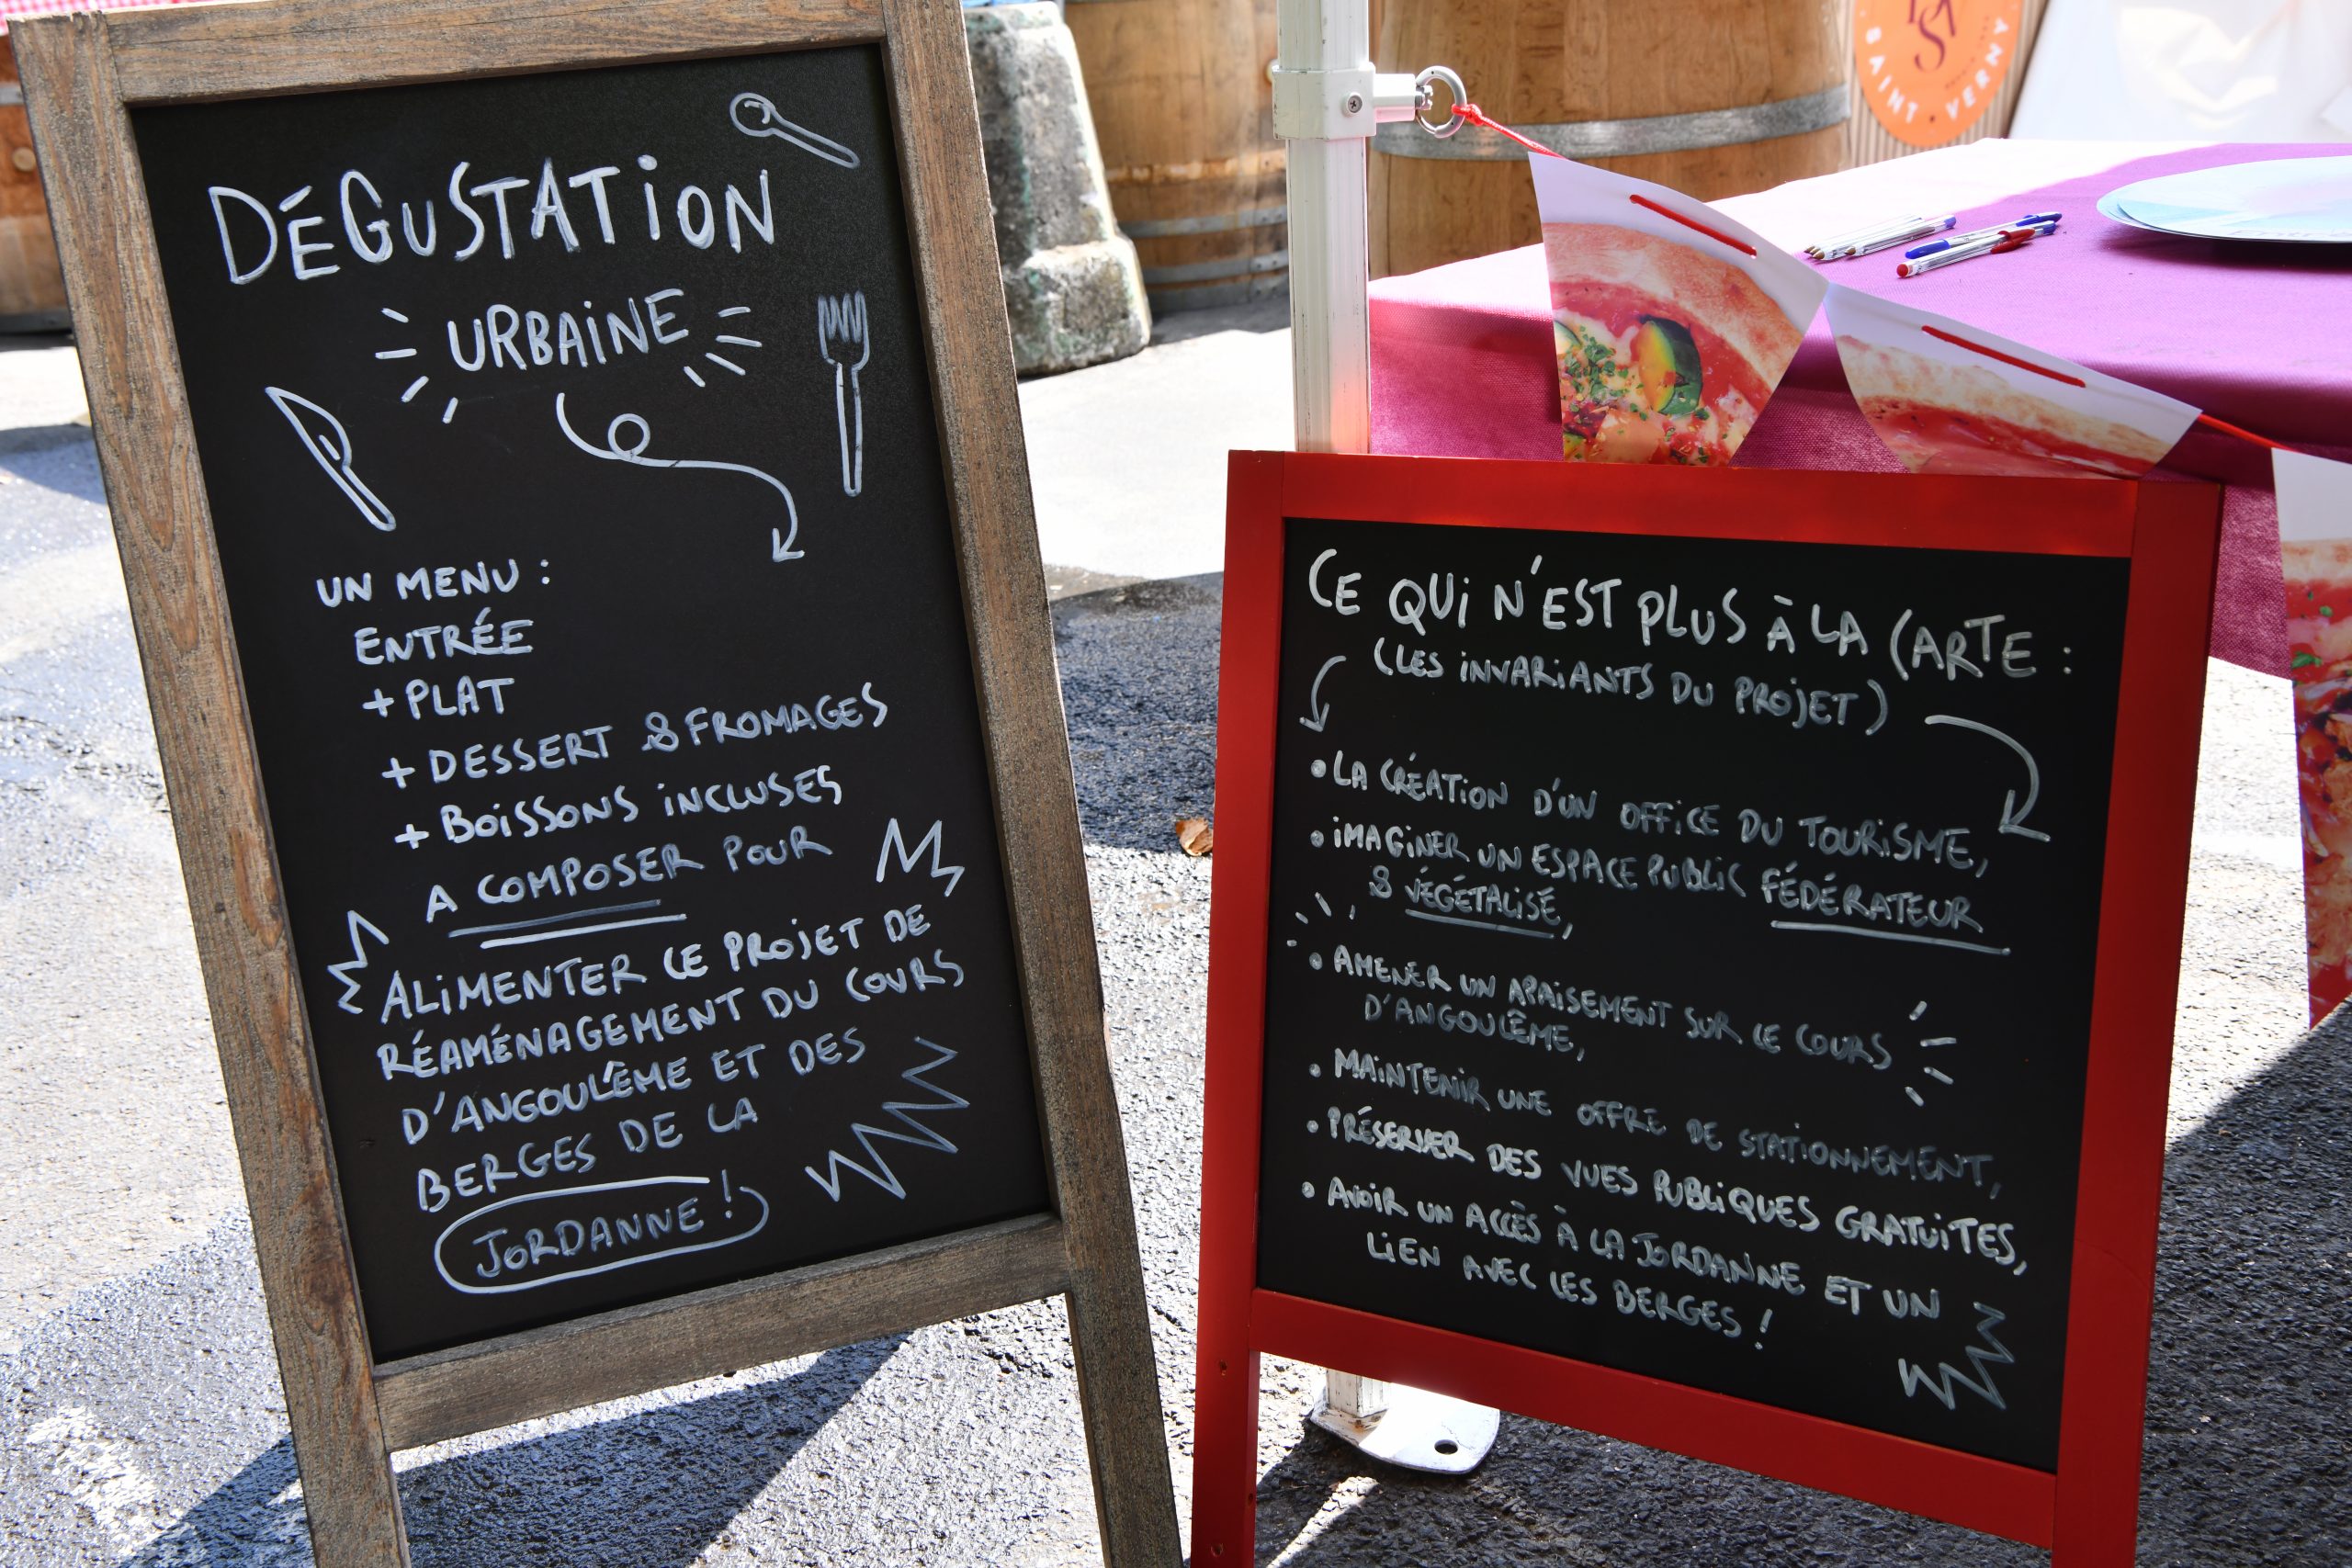 DÉGUSTATION
URBAINE
UN MENU :
ENTRÉE
+ PLAT
+ DESSERT & FROMAGES
+ BOISSONS INCLUSES
A COMPOSER POUR
ALIMENTER CE PROJET DE
RÉAMÉNAGEMENT DU COURS
D'ANGOULÊME ET DES
BERGES DE LA
JORDANNE !
SAINT VERNY
CE QUI N'EST PLUS À LA CARTE :
(LES INVARIANTS DU PROJET)
• LA CRÉATION D'UN OFFICE DU TOURISME,
• IMAGINER UN ESPACE PUBLIC FÉDÉRATEUR
& VÉGÉTALISÉ,
• AMENER UN APAISEMENT SUR LE COURS
D'ANGOULÊME,
• MAINTENIR UNE OFFRE DE STATIONNEMENT,
• PRÉSERVER DES VUES PUBLIQUES GRATUITES,
• AVOIR UN ACCÈS À LA JORDANNE ET UN
LIEN AVEC LES BERGES !